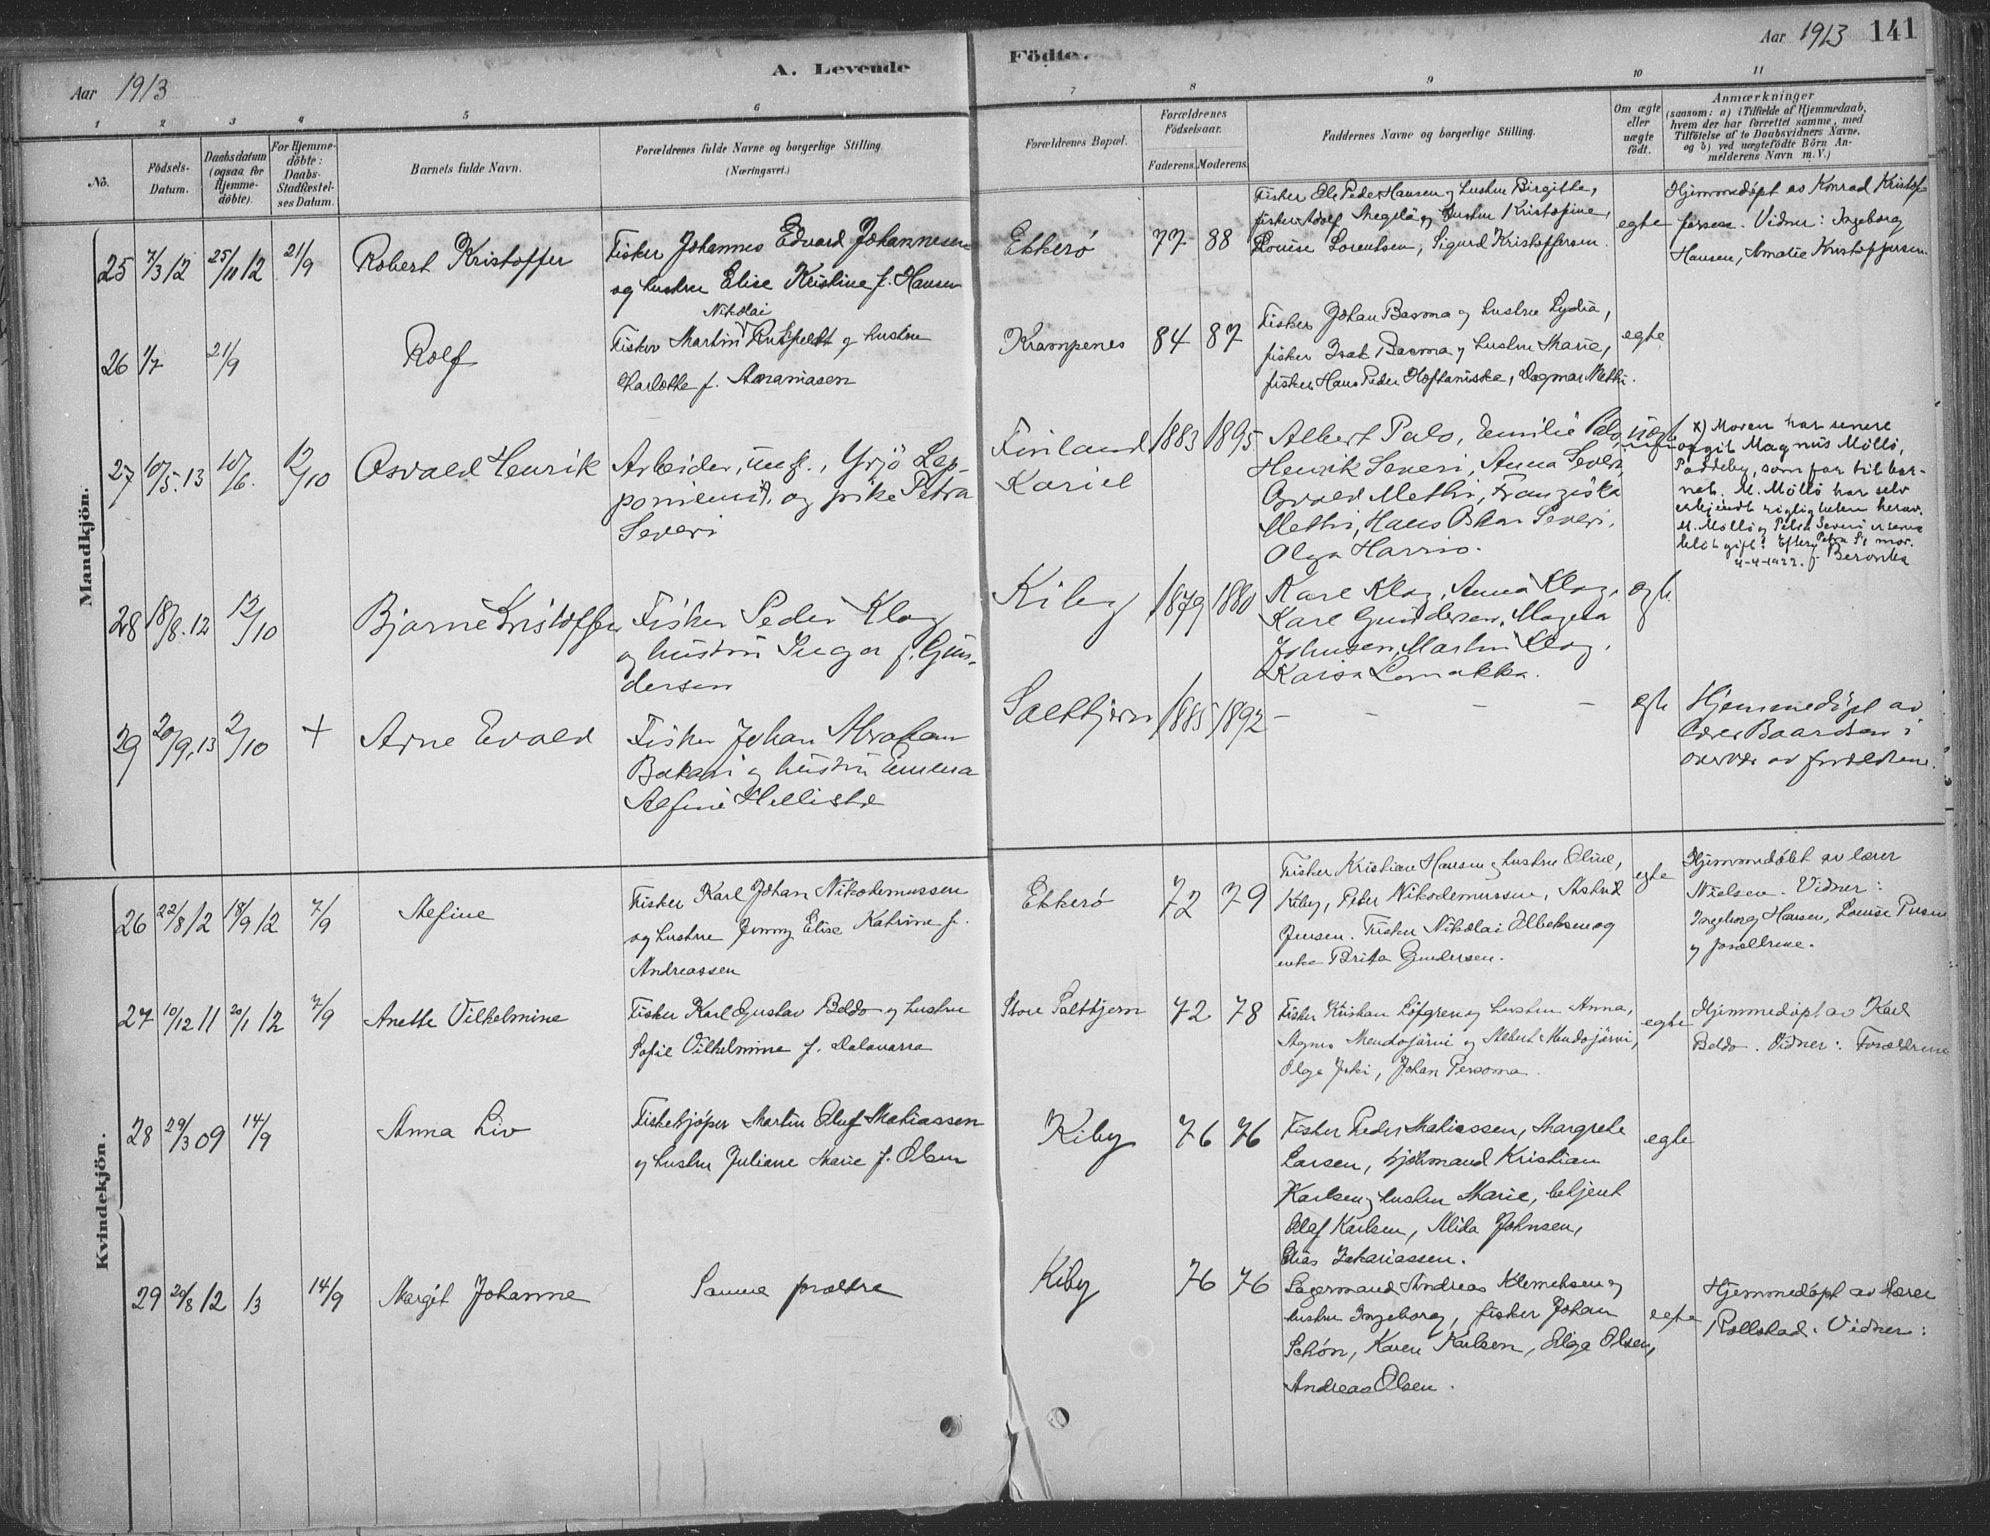 Aar 1913
A. Levende
Födte.
Aar 1913 141
1 2 3 4 5 6 7 8 9 10 11
No.
Födsels-
Datum.
Daabsdatum
(ogsaa for
Hjemme-
döbte).
For Hjemme-
döbte:
Daabs-
Stadfæstel-
ses Datum.
Barnets fulde Navn.
Forældrenes fulde Navne og borgerlige Stilling.
(Næringsvei.)
Forældrenes Bopæl.
Forældrenes
Födselsaar.
Faderens. Moderens.
Faddernes Navne og borgerlige Stilling.
Om ægte
eller
uægte
födt.
Anmærkninger
(saasom: a) i Tilfælde af Hjemmedaab,
hvem der har forrettet samme, med
Tilföielse af to Daabsvidners Navne,
og b) ved uægtefödte Börn An-
melderens Navn m. V.)
Mandkjön.
25 7/3 12 25/10 12 21/9 Robert Kristoffer
Fisker Johannes Edvard Johannesen
og hustru Elise Kristine f. Hansen
Ekkerö 77 88
Fisker Ole Peder Hansen og hustru Birgithe,
fisker Adolf og hustru Kristofine,
Louise Lorentsen, Sigurd Kristoffersen
egte
Hjemmedøpt av Konrad Kristof-
fersen. Vidner: Ingeborg
Hansen, Amalie Kristoffersen
26 1/7 21/9 Rolf
Nikolai
Fisker Martin og hustru
Charlotte f. Ananiasen
Krampenes 84 87
Fisker Johan Basma og hustru Lydia,
fisker Isak Basma og hustru Marie,
fisker Hans Peder, Dagmar Methi.
egte
27 10/5.13 10/6. 12/10 Osvald Henrik
Arbeider, ungk., Yrjö Lep-
poniemi x), og pike Petra
Severi
Finland
Kariel
1883 1895
Albert Palo, Emilie Palo,
Henrik Severi, Anna Severi
Osvald Methi, Franziska
Methi, Hans Oskar Severi,
Olga Harrio.
uegte
x) Moren har senere
opgit Magnus Möllö,
Paddeby, som far til bar-
net. M. Möllö har selv
erkjendt rigtigheten herav.
M. Möllö og Petra Severi er senere
blit gift. Efter Petra S's mor.
4-4-1922.
28 18/8.12 12/10 Bjarne Kristoffer
Fisker Peder Klog
og hustru Inga f. Gun-
dersen
Kiby 1879 1880
Karl Klog, Anna Klog,
Karl Gundersen, Magna
Johnsen, Martin Klog,
Kaisa Lomakka.
egte
29 20/9.13 2/10 + Arne Evald
Fisker Johan Abraham
Bakari og hustru Emma
Alfine
Saltbjern 1885 1892
- - - -
egte
Hjemmedøpt av
Baardsen i
overvær av forældrene.
Kvindekjön.
26 22/8 12 18/9 12 7/9 Stefine
Fisker Karl Johan Nikodemussen
og hustru Jenny Elise Katrine f.
Andreassen
Ekkerö 72 79
Fisker Kristian Hansen og hustru Oline,
Kiby, Peter Nikodemussen, Astrid
Jensen. Fisker Nikolai og
enke Brita Gundersen.
egte
Hjemmedøbt av lærer
Nielsen. Vidner:
Ingeborg Hansen, Louise
og forældrene.
27 10/12 11 20/1 12 7/9 Anette Vilhelmine
Fisker Karl Gustav Beldo og hustru
Sofie Vilhelmine f. Dalavarra
Store Saltbjern 72 78
Fisker Kristian Löfgren og hustru Anna,
Agnes Mendojärvi og Albert Mendojärvi,
Olga, Johan
egte
Hjemmedøpt av Karl
Beldo. Vidner: Forældrene
28 29/3 09 14/9 Anna Liv
Fiskekjöper Martin Oluf Mathiassen
og hustru Juliane Marie f. Olsen
Kiby 76 76
Fisker Peder Mathiassen, Margrete
Larsen, sjömand Kristian
Karlsen og hustru Marie, betjent
Olaf Karlsen, Alida Johnsen,
Elias Zakariassen.
egte
29 20/8 12 1/3 14/9 Margit Johanne
Samme forældre
Kiby 76 76
Lagermand Andreas Klemetsen og
hustru Ingeborg, fisker Johan
Schön, Karen Karlsen, Helga Olsen,
Andreas Olsen.
egte
Hjemmedøpt av Lærer
Rollstad. Vidner: